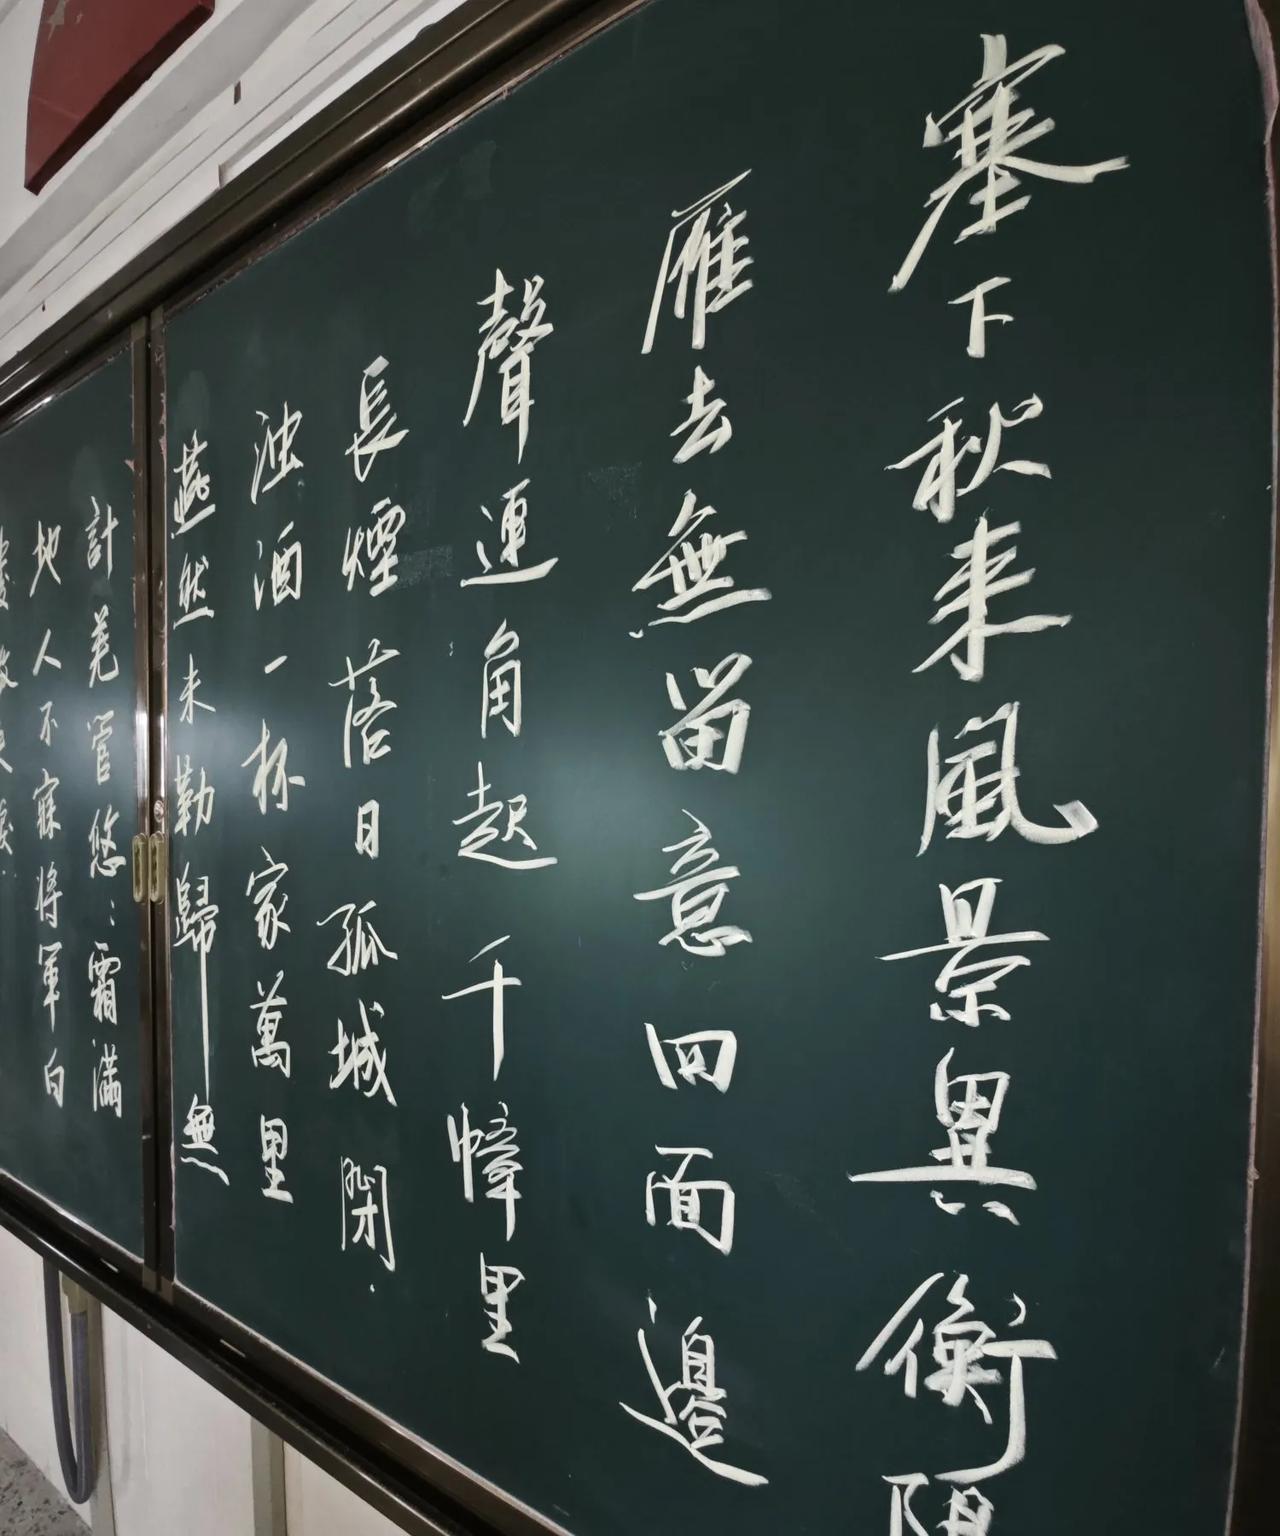 塞下秋来風景異衡陽
雁去無留意四面邊
聲連角起千幛里
長煙落日孤城閉
浊酒一杯家萬里
燕然未勒歸無
計羌管悠:霜滿
地人不寐将軍白